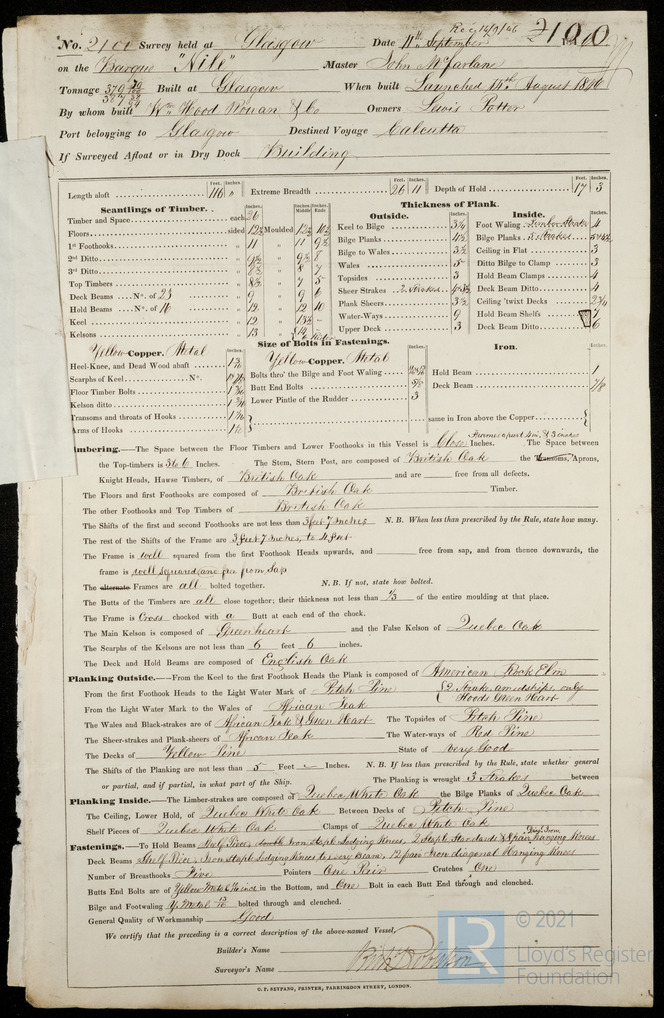 Rec 14/9/46
No. 2100 Survey held at Glasgow Date 11th September 2100
on the Barque "Nile" Master John McFarlan
Tonnage 379 Built at Glasgow When built Launched 14th August 1846
By whom built Wm Wood Rowan & Co Owners Lewis Potter
Port belonging to Glasgow Destined Voyage Calcutta
If Surveyed Afloat or in Dry Dock Building
Length aloft 116 Feet. Inches. Extreme Breadth 26 11 Feet. Inches. Depth of Hold 17 3 Feet. Inches.
Scantlings of Timber.
Timber and Space each 26
Floors sided 12½ Moulded 12½ 10½
1st Foothooks 11 " 11 9½
2nd Ditto 9½ " 9½ 8
3rd Ditto 8½ " 8 7
Top Timbers 8½ " 7 5
Deck Beams No. of 23 9 " 9 6
Hold Beams No. of 16 12 " 12 10
Keel 12 " 13½
Kelsons 13 " 14
Thickness of Plank.
Outside.
Keel to Bilge 3½
Bilge Planks 4½
Bilge to Wales 3½
Wales 5
Topsides 3
Sheer Strakes 2 Strakes
Plank Sheers 3½
Water-Ways 9
Upper Deck 3
Inside.
Foot Waling Limber Strake 4
Bilge Planks 5 Strakes
Ceiling in Flat 3
Ditto Bilge to Clamp 3
Hold Beam Clamps 4
Deck Beam Ditto 4
Ceiling 'twixt Decks 2¾
Hold Beam Shelfs 7
Deck Beam Ditto 6
Size of Bolts in Fastenings.
Yellow Copper. Metal
Heel-Knee, and Dead Wood abaft
Scarphs of Keel No.
Floor Timber Bolts
Kelson ditto
Transoms and throats of Hooks
Arms of Hooks
Yellow Copper. Metal
Bolts thro' the Bilge and Foot Waling
Butt End Bolts
Lower Pintle of the Rudder 3
Iron.
Hold Beam 1
Deck Beam 7/8
same in Iron above the Copper
Frames apart 4 in. & 3 inches
Timbering.—The Space between the Floor Timbers and Lower Foothooks in this Vessel is Close Inches. The Space between
the Top-timbers is 3 to 6 Inches. The Stem, Stern Post, are composed of British Oak the Transoms, Aprons,
Knight Heads, Hawse Timbers, of British Oak and are free from all defects.
The Floors and first Foothooks are composed of British Oak Timber.
The other Foothooks and Top Timbers of British Oak
The Shifts of the first and second Foothooks are not less than 3 feet 7 Inches N. B. When less than prescribed by the Rule, state how many.
The rest of the Shifts of the Frame are 3 feet 7 Inches, to 4 feet
The Frame is well squared from the first Foothook Heads upwards, and free from sap, and from thence downwards, the
frame is well squared and free from Sap
The alternate Frames are all bolted together. N. B. If not, state how bolted.
The Butts of the Timbers are all close together; their thickness not less than ⅓ of the entire moulding at that place.
The Frame is Cross chocked with a Butt at each end of the chock.
The Main Kelson is composed of Greenheart and the False Kelson of Quebec Oak
The Scarphs of the Kelsons are not less than 6 feet 6 inches.
The Deck and Hold Beams are composed of English Oak
Planking Outside.—From the Keel to the first Foothook Heads the Plank is composed of American Rock Elm
From the first Foothook Heads to the Light Water Mark of Pitch Pine {2 Strake amidships only Hoods Green Heart
From the Light Water Mark to the Wales of African Teak
The Wales and Black-strakes are of African Teak & Green Heart The Topsides of Pitch Pine
The Sheer-strakes and Plank-sheers of African Teak The Water-ways of Red Pine
The Decks of Yellow Pine State of very Good
The Shifts of the Planking are not less than 5 Feet — Inches. N. B. If less than prescribed by the Rule, state whether general
or partial, and if partial, in what part of the Ship. The Planking is wrought 3 Strakes between
Planking Inside.—The Limber-strakes are composed of Quebec White Oak the Bilge Planks of Quebec Oak
The Ceiling, Lower Hold, of Quebec White Oak Between Decks of Pitch Pine
Shelf Pieces of Quebec White Oak Clamps of Quebec White Oak
Fastenings.—To Hold Beams Shelf Piece, double Iron Staple Lodging Knees, 2 Staple Standards & 8 pair Diagl. Iron hanging Knees
Deck Beams Shelf Piece, Iron Staple Lodging Knees to every Beam, 12 pair Iron diagonal Hanging Knees
Number of Breasthooks Five Pointers One Pair Crutches One
Butts End Bolts are of Yellow Metal in the Bottom, and One Bolt in each Butt End through and clenched.
Bilge and Footwaling Y. Metal bolted through and clenched.
General Quality of Workmanship Good
We certify that the preceding is a correct description of the above-named Vessel,
Builder's Name
Surveyor's Name Robertson
C. F. SEYFANG, PRINTER, FARRINGDON STREET, LONDON.
LR
© 2021
Lloyd's Register
Foundation